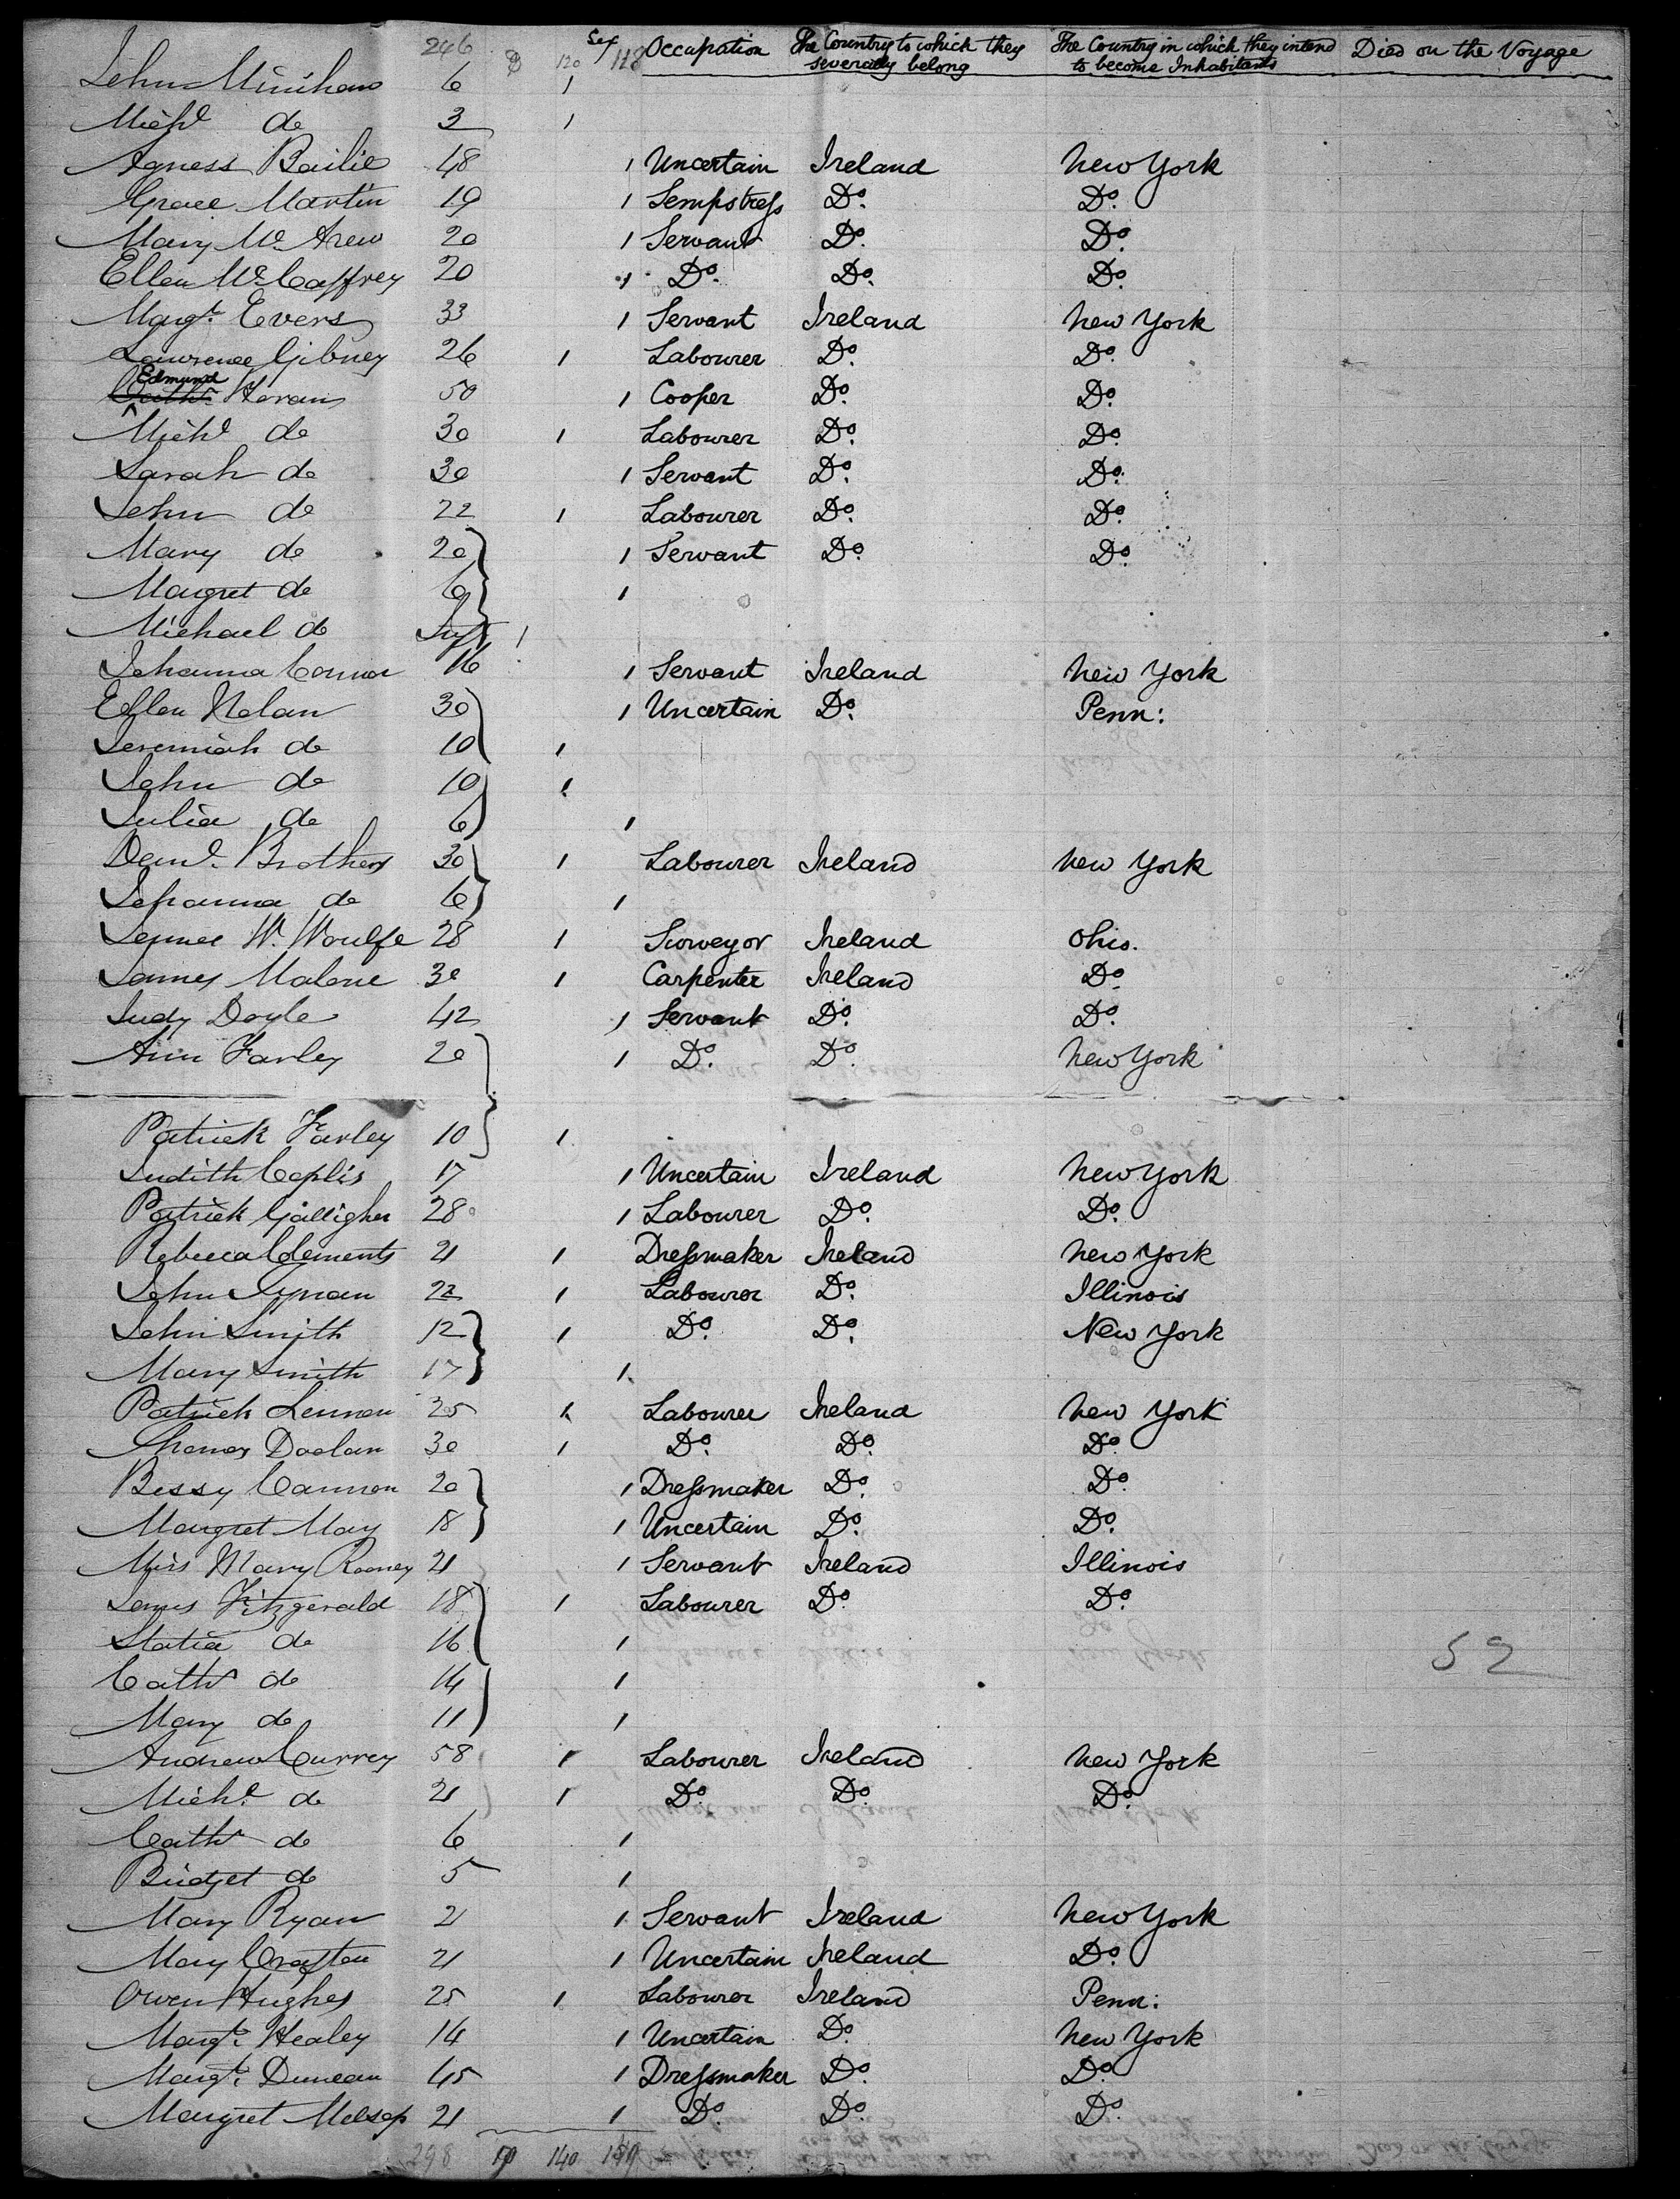 246 120 Sex 118 Occupation The Country to which they severally belong The Country in which they intend to become Inhabitants Died on the Voyage
John Minihan 6 1
Michl do 3 1
Agness Bailie 48 1 Uncertain Ireland New York
Grace Martin 19 1 Sempstress Do. Do.
Mary Mc 20 1 Servant Do. Do.
Ellen McCaffrey 20 1 Do. Do. Do.
Margt. Evers 33 1 Servant Ireland New York
Lawrence Gibney 26 1 Labourer Do. Do.
Edmund Horan 50 1 Cooper Do. Do.
Michl do 30 1 Labourer Do. Do.
Sarah do 30 1 Servant Do. Do.
John do 22 1 Labourer Do. Do.
Mary do 20 1 Servant Do. Do.
Margret do 6 1
Michael do Inft 1
Johanna Connor 16 1 Servant Ireland New York
Ellen Nolan 30 1 Uncertain Do. Penn:
Jeremiah do 10 1
John do 10 1
Julia do 6 1
Danl. Brothers 30 1 Labourer Ireland New York
Johanna do 6 1
James W. Woulfe 28 1 Surveyor Ireland Ohio.
James Malone 30 1 Carpenter Ireland Do.
Judy Doyle 42 1 Servant Do. Do.
Ann Farley 20 1 Do. Do. New York
Patrick Farley 10 1
Judith Caplis 17 1 Uncertain Ireland New York
Patrick Galligher 28 1 Labourer Do. Do.
Rebecca Clements 21 1 Dressmaker Ireland New York
John 22 1 Labourer Do. Illinois
John Smith 12 1 Do. Do. New York
Mary Smith 17 1
Patrick Lennon 25 1 Labourer Ireland New York
Thomas Doolan 30 1 Do. Do. Do.
Bessy Cannon 20 1 Dressmaker Do. Do.
Margret May 18 1 Uncertain Do. Do.
Miss Mary Rooney 21 1 Servant Ireland Illinois
James Fitzgerald 18 1 Labourer Do. Do.
Statia do 16 1
52
Cathr do 14 1
Mary do 11 1
Andrew Currey 58 1 Labourer Ireland New York
Michl. do 21 1 Do. Do. Do.
Cathr do 6 1
Bridget do 5 1
Mary Ryan 21 1 Servant Ireland New York
Mary Crafton 21 1 Uncertain Ireland Do.
Owen Hughes 25 1 Labourer Ireland Penn:
Margt. Healey 14 1 Uncertain Do. New York
Margt. Duncan 45 1 Dressmaker Do. Do.
Margret Melsop 21 1 Do. Do. Do.
298 140